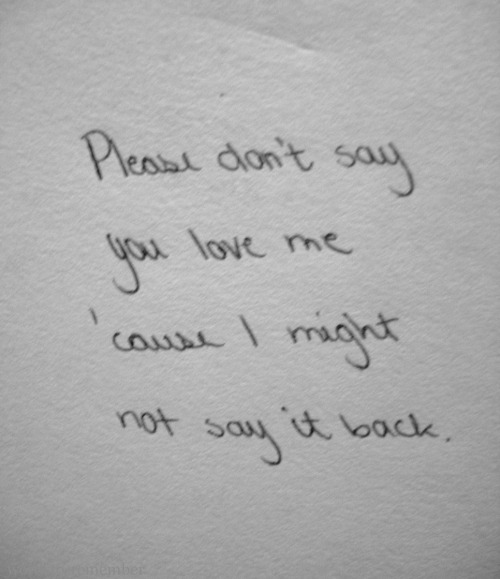 Please don't say
you love me
'cause I might
not say it back.